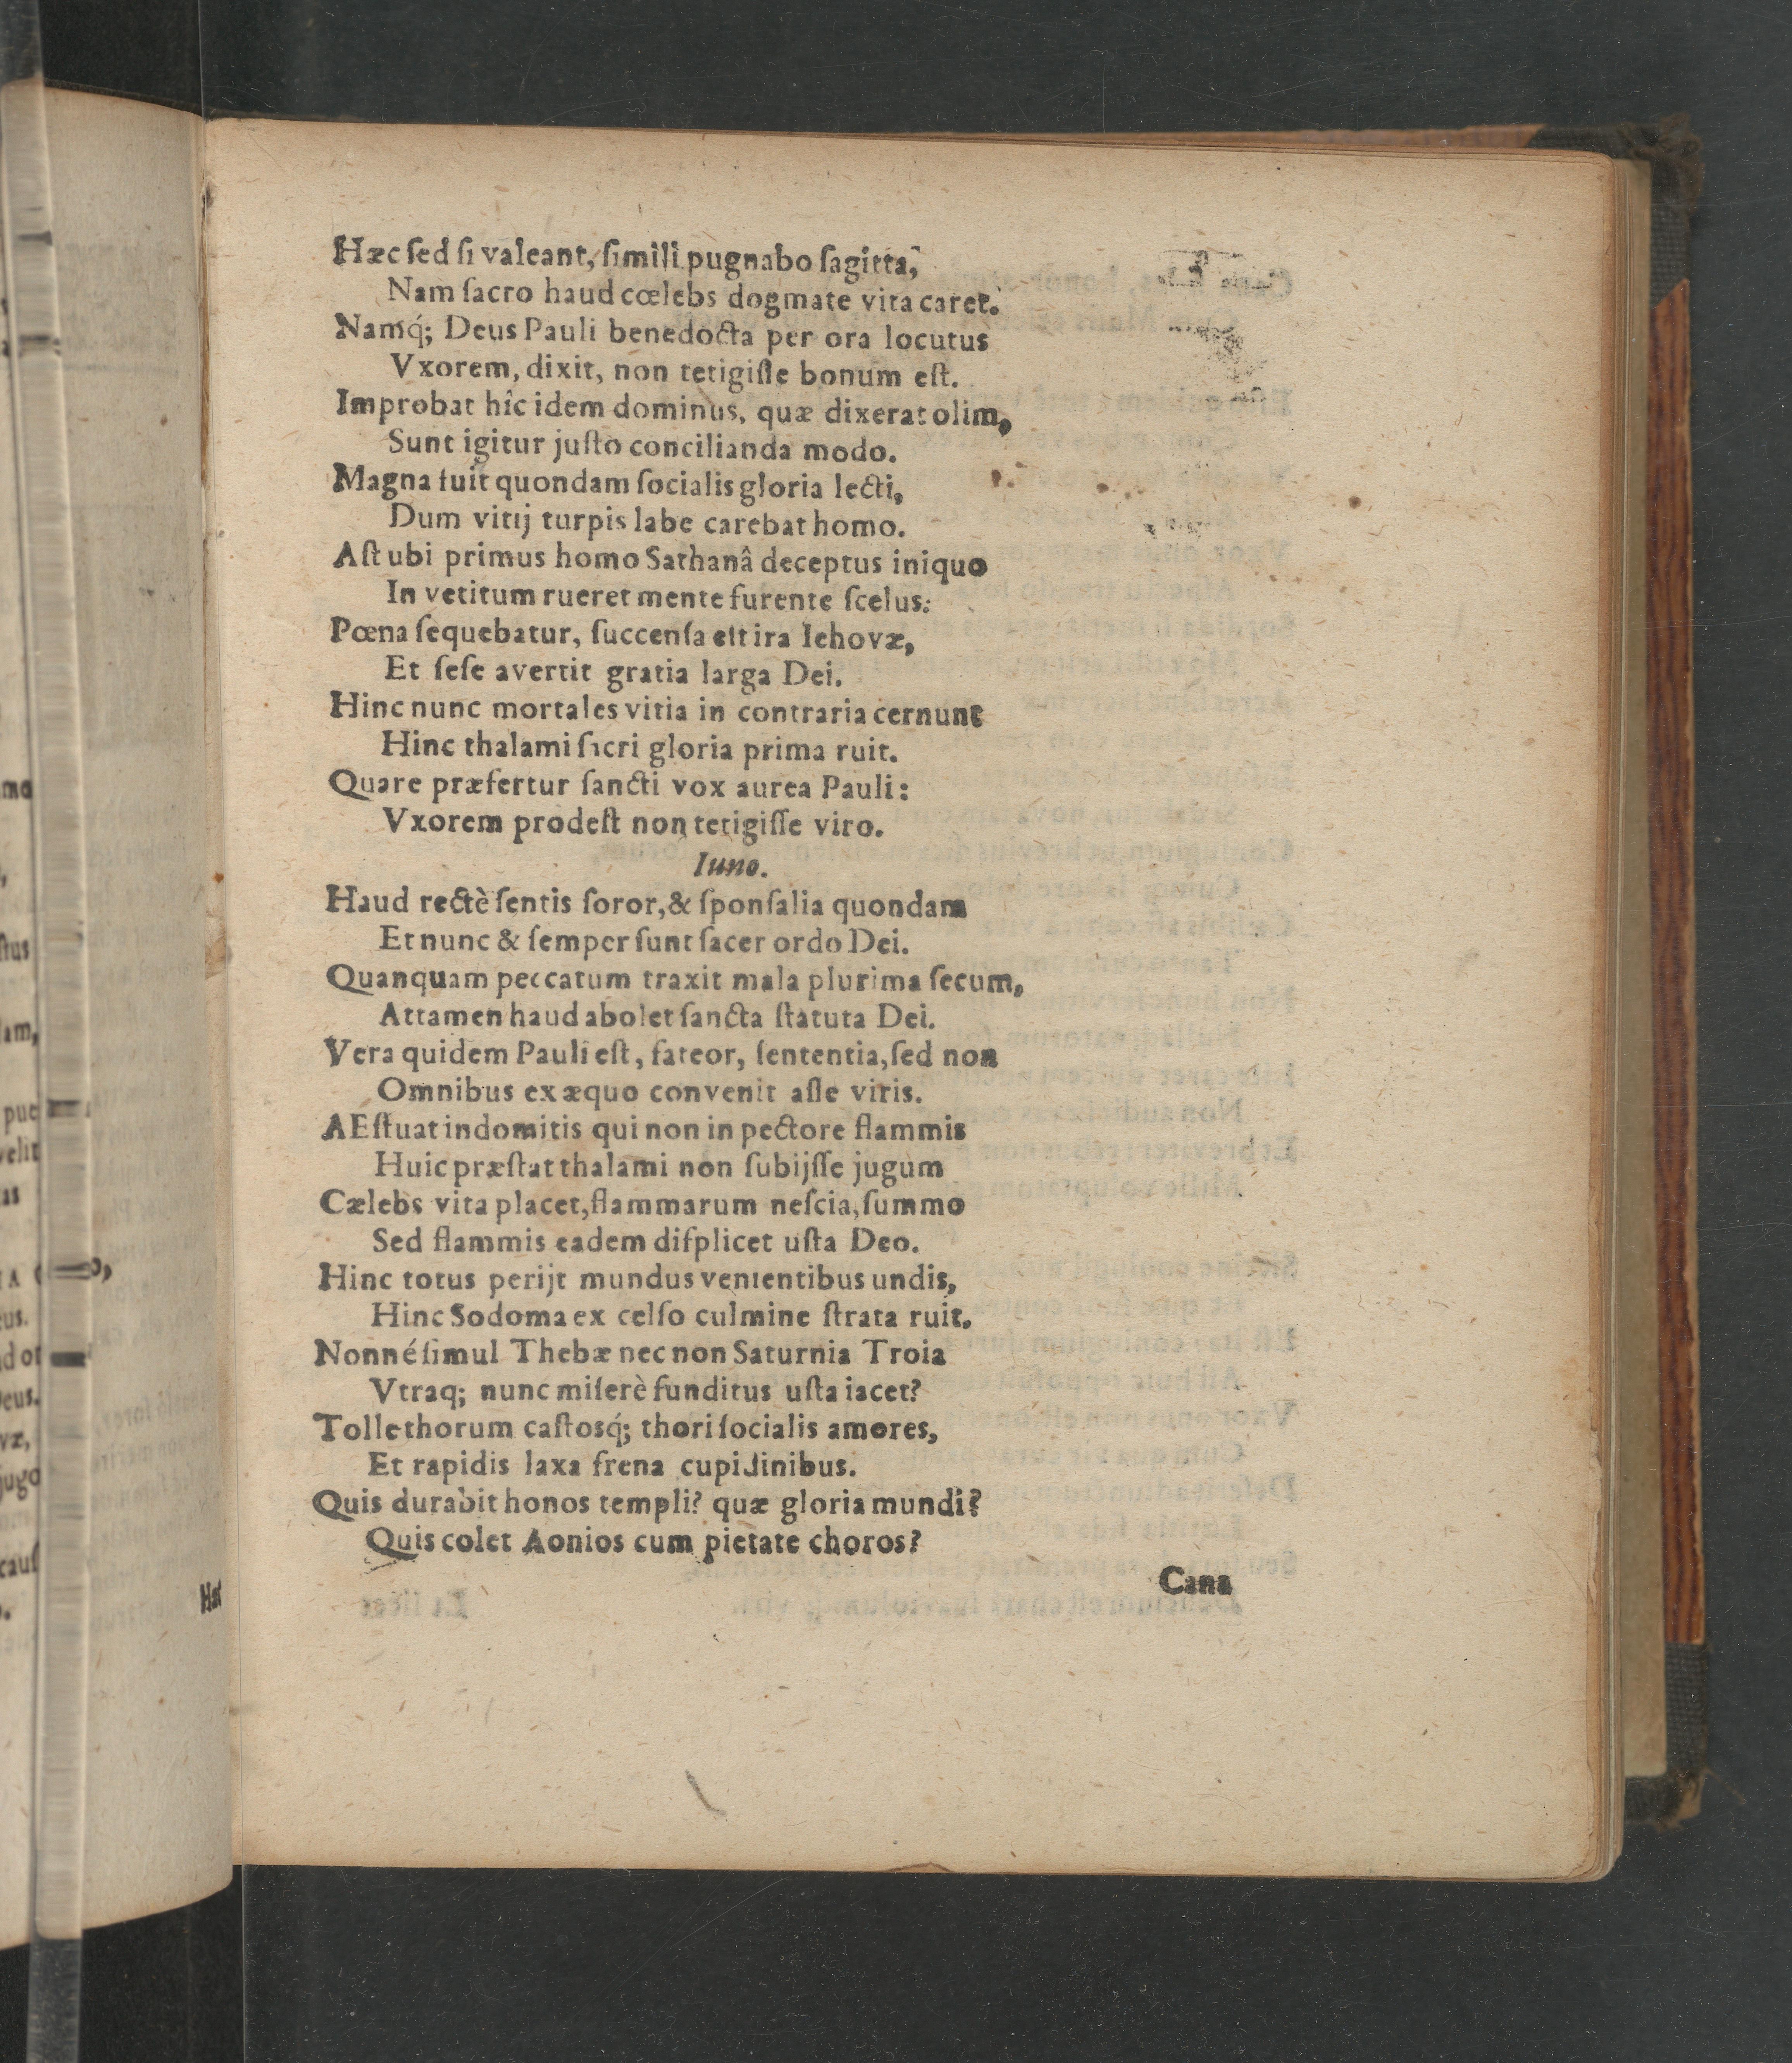 Hæc ſed ſi valeant, ſimili pugnabo ſagitta,
Nam ſacro haud cœlebs dogmate vita caret.
Namq́; Deus Pauli benedocta per ora locutus
Vxorem, dixit, non tetigiſſe bonum eſt.
Improbat hîc idem dominus, quæ dixerat olim,
Sunt igitur juſto concilianda modo.
Magna fuit quondam ſocialis gloria lecti,
Dum vitij turpis labe carebat homo.
Aſt ubi primus homo Sathanâ deceptus iniquo
In vetitum rueret mente furente ſcelus:
Pœna ſequebatur, ſuccenſa eſt ira Iehovæ,
Et ſeſe avertit gratia larga Dei.
Hinc nunc mortales vitia in contraria cernunt
Hinc thalami ſacri gloria prima ruit.
Quare præfertur ſancti vox aurea Pauli:
Vxorem prodeſt non tetigiſſe viro.
Iuno.
Haud rectè ſentis ſoror, & ſponſalia quondam
Et nunc & ſemper ſunt ſacer ordo Dei.
Quanquam peccatum traxit mala plurima ſecum,
Attamen haud abolet ſancta ſtatuta Dei.
Vera quidem Pauli eſt, fateor, ſententia, ſed non
Omnibus ex æquo convenit aſſe viris.
AEſtuat indomitis qui non in pectore flammis
Huic præſtat thalami non ſubijſſe jugum
Cælebs vita placet, flammarum neſcia, ſummo
Sed flammis eadem diſplicet uſta Deo.
Hinc totus perijt mundus venientibus undis,
Hinc Sodoma ex celſo culmine ſtrata ruit.
Nonné ſimul Thebæ nec non Saturnia Troia
Vtraq; nunc miſerè funditus uſta iacet?
Tolle thorum caſtosq́; thori ſocialis amores,
Et rapidis laxa frena cupidinibus.
Quis durabit honos templi? quæ gloria mundi?
Quis colet Aonios cum pietate choros?
Cana